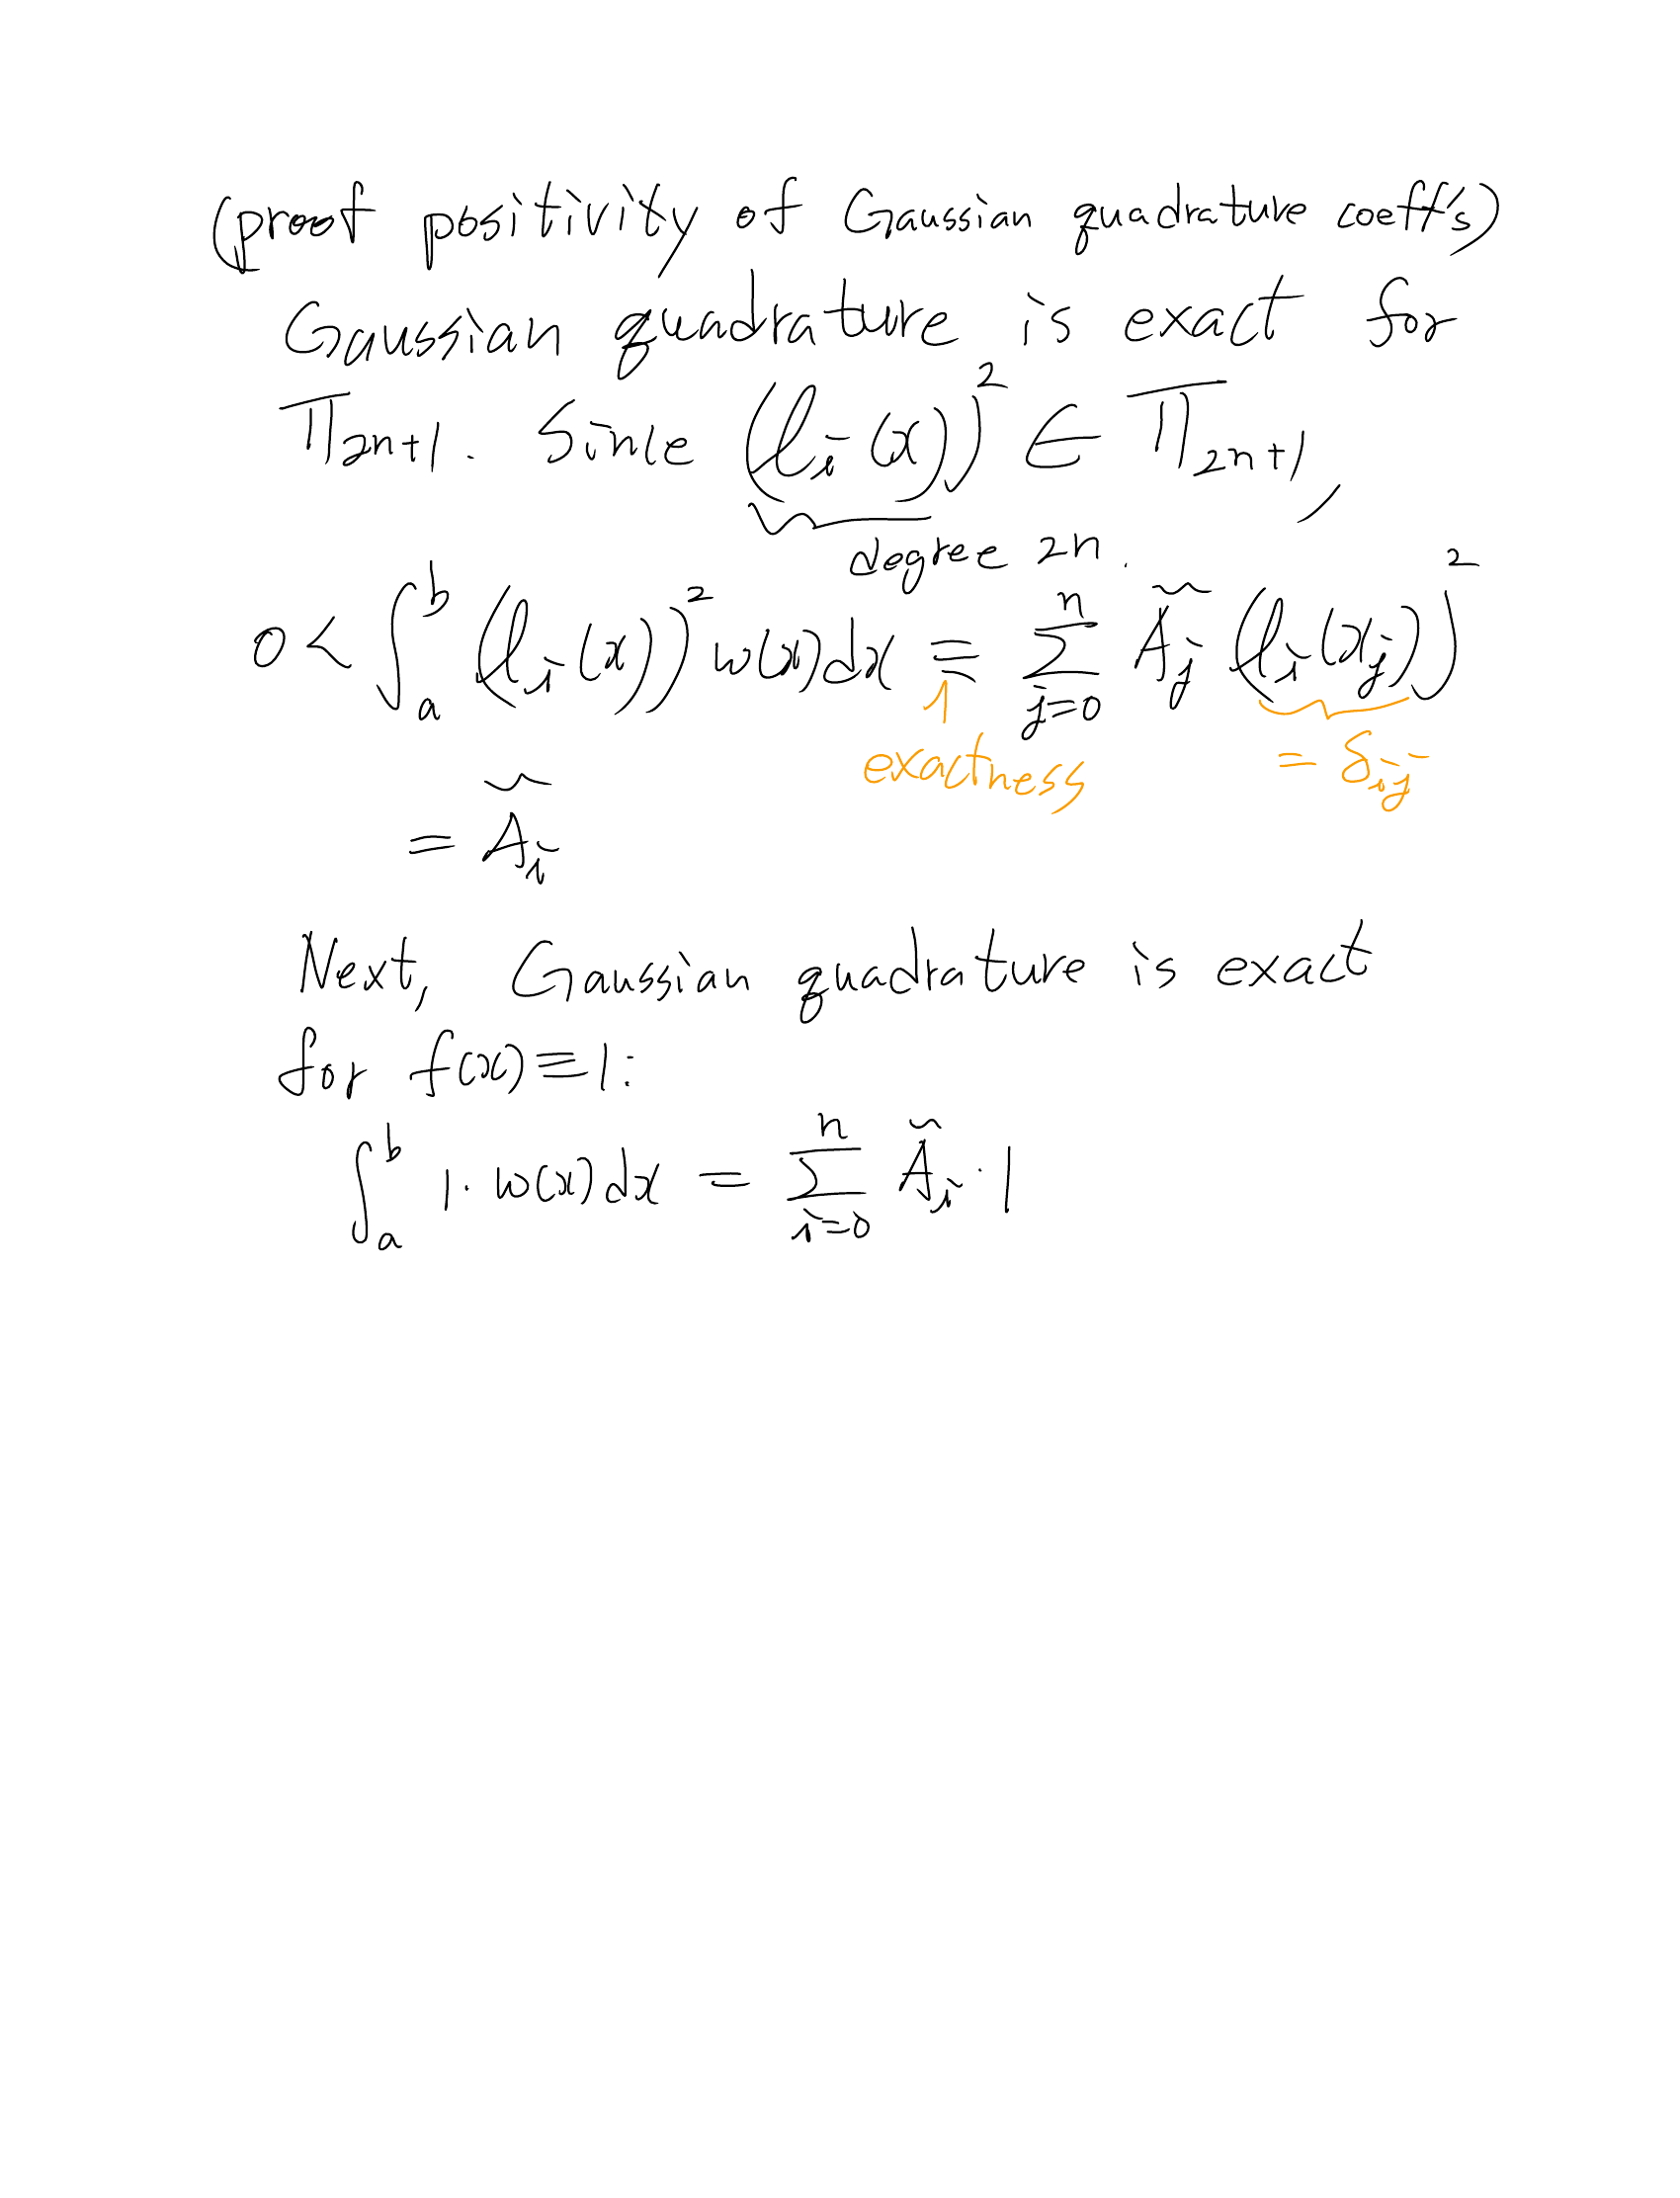 (proof positivity of Gaussian quadrature coeff's)
Gaussian quadrature is exact for
Π_{2n+1}. Since (l_i(x))^2 ∈ Π_{2n+1},
degree 2n.
0 < ∫_a^b (l_i(x))^2 w(x) dx = ∑_{j=0}^n Ã_j (l_i(x_j))^2
↑ exactness = δ_{ij}
= Ã_i
Next, Gaussian quadrature is exact
for f(x) ≡ 1:
∫_a^b 1 · w(x) dx = ∑_{i=0}^n Ã_i · 1